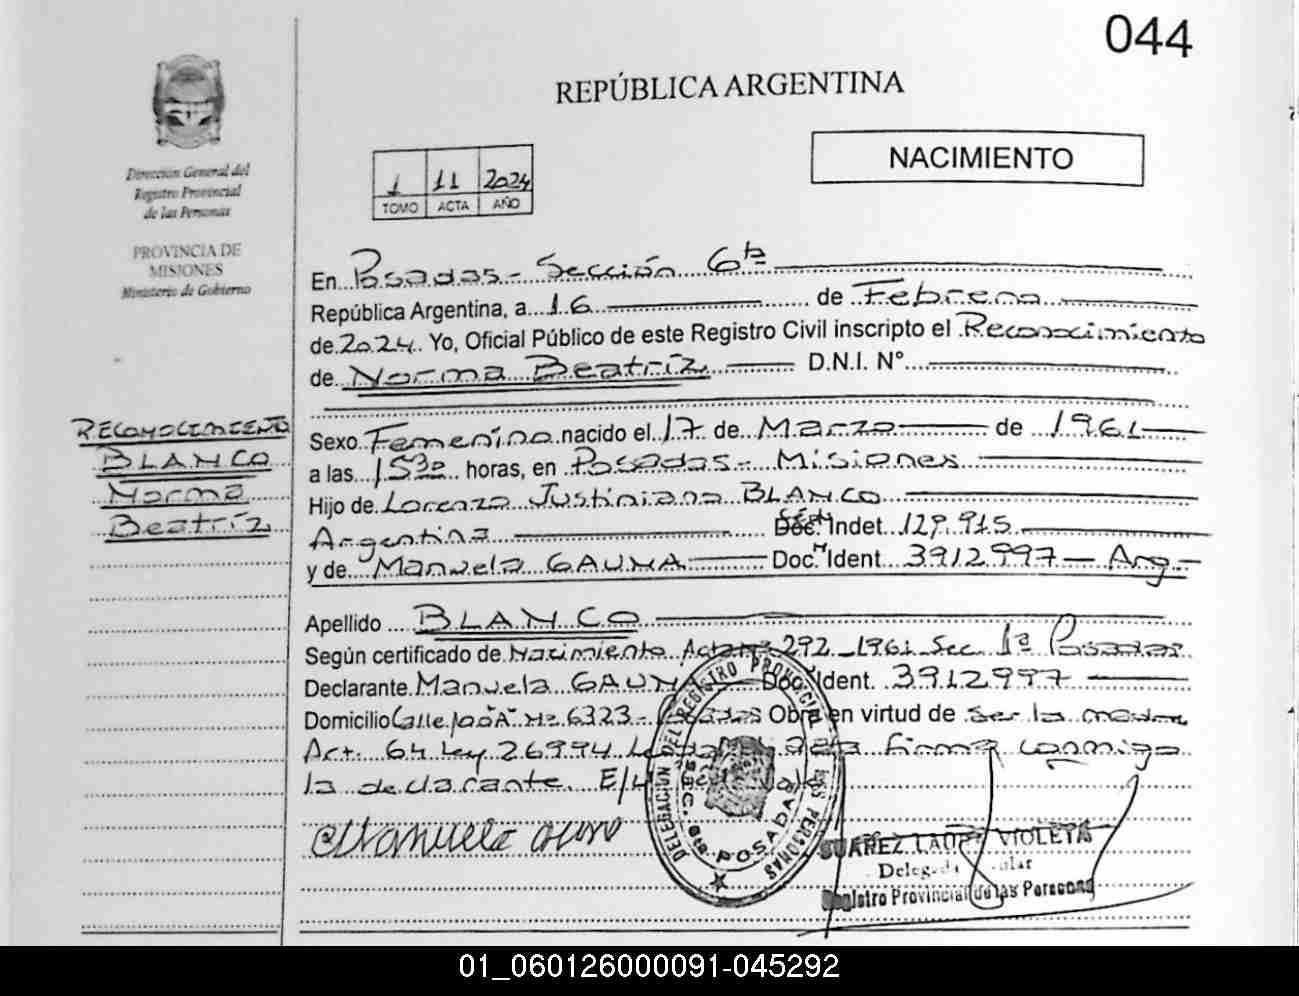 044
REPÚBLICA ARGENTINA
NACIMIENTO
1 11 2024
TOMO ACTA AÑO
Dirección General del
Registro Provincial
de las Personas
PROVINCIA DE
MISIONES
Ministerio de Gobierno
RECONOCIMIENTO
BLANCO
Norma
Beatríz
En Posadas - Sección 6ta
República Argentina, a 16 de Febrero
de 2024. Yo, Oficial Público de este Registro Civil inscripto el Reconocimiento
de Norma Beatríz D.N.I. N°
Sexo Femenino nacido el 17 de Marzo de 1961
a las 1530 horas, en Posadas - Misiones
Hijo de Lorenzo Justiniano BLANCO
Argentina Doc. Indet 129.915
y de Manuela GAUNA Doc. Ident. 3912997 - Arg.-
Apellido BLANCO
Según certificado de Nacimiento Acta N° 292 - 1961 Sec 1ª Posadas
Declarante Manuela GAUNA Doc. Ident. 3912997
Domicilio Calle 100"A" N° 6323 - Posadas Obra en virtud de ser la madre
Art. 64 Ley 26994 Acta firma conmigo
la declarante. E/L
Manuela
DELEGACION DEL REGISTRO PROVINCIAL DE LAS PERSONAS
SEC. 6ta POSADAS
SUAREZ LAURA VIOLETA
Registro Provincial de las Personas
01_060126000091-045292